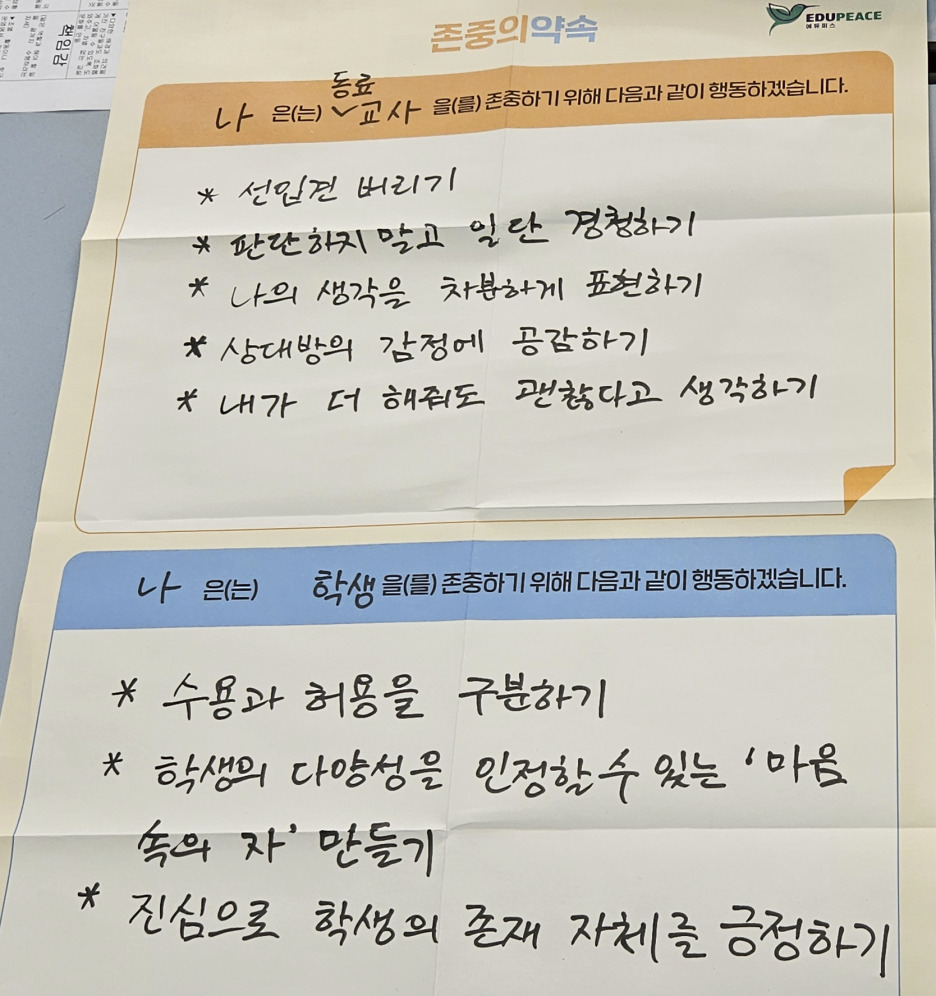 책임감
존중의약속
EDUPEACE
에듀피스
동료
나 은(는) ∨교사 을(를) 존중하기 위해 다음과 같이 행동하겠습니다.
* 선입견 버리기
* 판단하지 말고 일단 경청하기
* 나의 생각을 차분하게 표현하기
* 상대방의 감정에 공감하기
* 내가 더 해줘도 괜찮다고 생각하기
나 은(는) 학생 을(를) 존중하기 위해 다음과 같이 행동하겠습니다.
* 수용과 허용을 구분하기
* 학생의 다양성을 인정할 수 있는 '마음
속의 자' 만들기
* 진심으로 학생의 존재 자체를 긍정하기